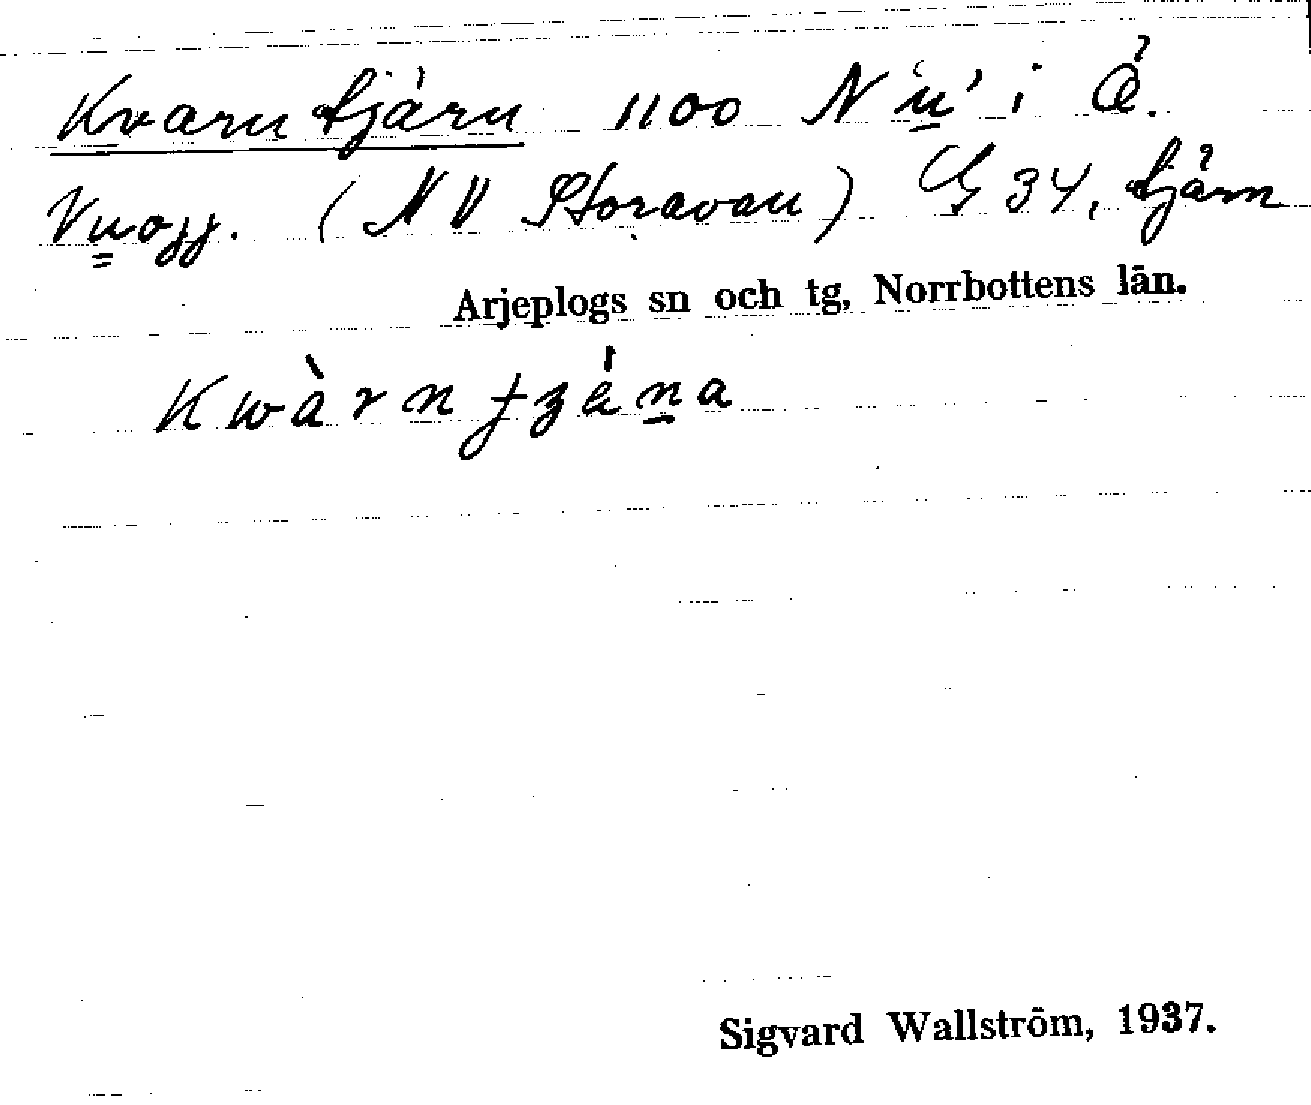 Kvarntjärn 1100 N "u" i Ö.
Vuogg. (NV Storavan) G 34, tjärn
Arjeplogs sn och tg, Norrbottens län.
Kwàrn
Sigvard Wallström, 1937.